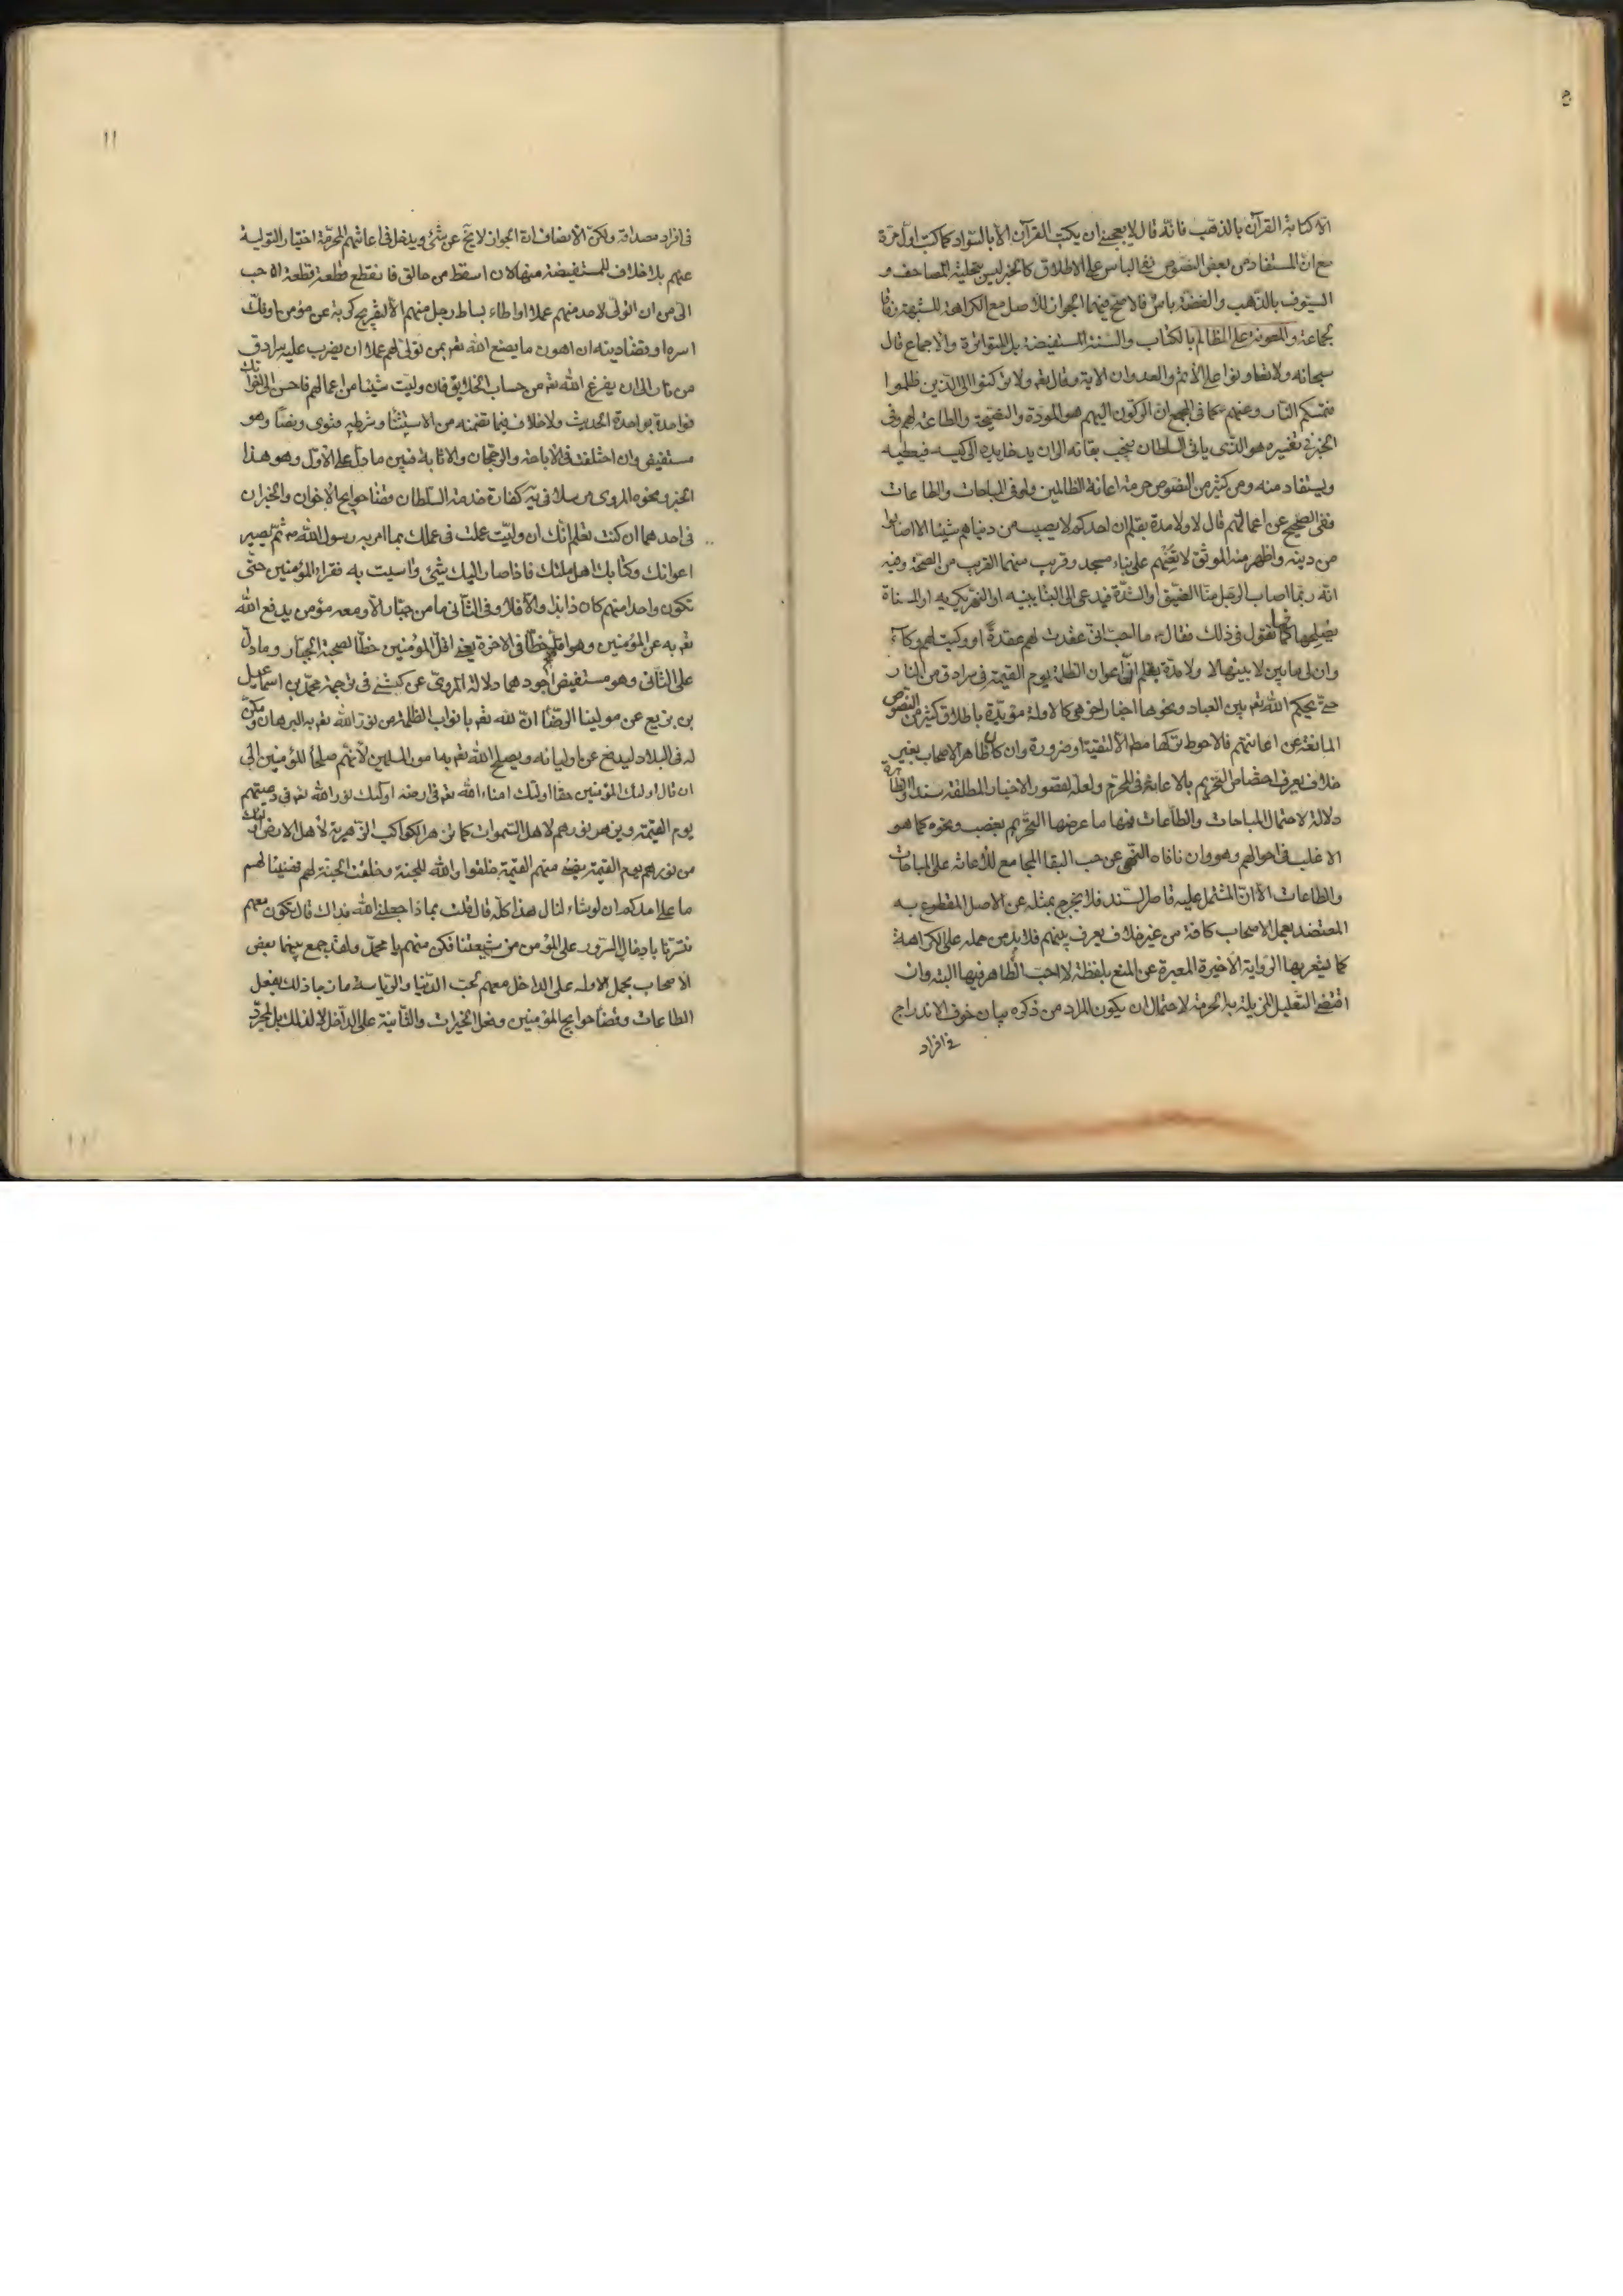 الا كتابة القرآن بالذهب فانه قال لا يعجبني ان يكتب القرآن الا بالسواد كما كتب اول مرة
مع ان المستفاد من بعض النصوص نفي الباس على الاطلاق كالخبر ليس بتحلية المصاحف و
السيوف بالذهب والفضة باس فالاصح فيهما الجواز للاصل مع الكراهة للشبهة وفاقا
لجماعة والمعونة على المظالم بالكتاب والسنة المستفيضة بل المتواترة والاجماع قال
سبحانه ولا تعاونوا على الاثم والعدوان الاية وقال تعالى ولا تركنوا الى الذين ظلموا
فتمسكم النار وعنهم كما في المجمع ان الركون اليهم هو المودة والنصيحة والطاعة لهم وفي
الخبر في تفسيره هو الذي ياتي السلطان فيحب بقائه الى ان يدخل يده الى كيسه فيعطيه
ويستفاد منه ومن كثير من النصوص حرمة اعانة الظالمين ولو في المباحات والطاعات
ففي الصحيح عن اعمالهم قال لا ولا مدة بقلم ان احدكم لا يصيب من دنياهم شيئا الا اصابوا
من دينه واظهر منه الموثق لا تعنهم على بناء مسجد وقريب منهما القريب من الصحة وفيه
انه ربما اصاب الرجل منا الضيق او الشدة فيدعى الى البناء يبنيه او النهر يكريه او المسناة
يصلحها فما تقول في ذلك فقال ما احب اني عقدت لهم عقدة او وكيت لهم وكاء
وان لي ما بين لابيتها لا ولا مدة بقلم ان اعوان الظلمة يوم القيمة في سرادق من النار
حتى يحكم الله تعالى بين العباد ونحوها اخبار اخر هي كالاولة مؤيدة باطلاق كثير من النصوص
المانعة عن اعانتهم فالاحوط تركها مطلقا الا لتقية او ضرورة وان كان ظاهر الاصحاب بغير
خلاف يعرف اختصاص التحريم بالاعانة في المحرم ولعله لقصور الاخبار المطلقة سندا
دلالة لاحتمال المباحات والطاعات فيها ما عرضها التحريم بغصب ونحوه كما هو
الاغلب في احوالهم وهو وان نافاه النهي عن حب البقا المجامع للاعانة على المباحات
والطاعات الا ان المشتمل عليه قاصر السند فلا يخرج بمثله عن الاصل المقطوع به
المعتضد بعمل الاصحاب كافة من غير خلاف يعرف بينهم فلا بد من حمله على الكراهة
كما يشعر بها الرواية الاخيرة المعبرة عن المنع بلفظة لا احب الظاهر فيها البته وان
اقتضى التعليل المزيلة به الحرمة لاحتمال ان يكون المراد من ذكره بيان خوف الاندراج
في افراد
١١
في افراد مصداقه ولكن الانصاف ان الجواز لا يخ عن شئ ويدخل في اعانتهم المحرمة اختيار التولية
عنهم بلا خلاف للمستفيضة منها لان اسقط من حالق فانقطع قطعة قطعة احب
الى من ان اتولى لاحد منهم عملا او اطاء بساط رجل منهم الا لتفريج كربة عن مؤمن او فك
اسره او قضاء دينه ان اهون ما يصنع الله تعالى بمن تولى لهم عملا ان يضرب عليه سرادق
من نار الى ان يفرغ الله تعالى من حساب الخلايق فان وليت شيئا من اعمالهم فاحسن الى اخوانك
فواحدة بواحدة الحديث ولا خلاف فيما تضمنه من الاستثناء وشرطه فتوى ونصا وهو
مستفيض وان اختلفت في الاباحة والرجحان والاثابة فبين ما دل على الاول وهو هذا
الخبر ونحوه المروي مرسلا في يه كفارة خدمة السلطان قضاء حوايج الاخوان والخبران
في احدهما ان كنت تعلم انك ان وليت عملت في عملك بما امر به رسول الله ص ثم تصير
اعوانك وكتابك اهل ملتك فاذا صار اليك شئ واسيت به فقراء المؤمنين حتى
تكون واحدا منهم كان ذا بذا والا فلا وفي الثاني ما من جبار الا ومعه مؤمن يدفع الله
تعالى به عن المؤمنين وهو اقلهم حظا في الاخرة يعني اقل المؤمنين حظا لصحبة الجبار وما دل
على الثاني وهو مستفيض اجودهما دلالة المروي عن كشي في ترجمة محمد بن اسماعيل
بن بزيع عن مولينا الرضا ان لله تعالى بابواب الظلمة من نور الله تعالى به البرهان ومكن
له في البلاد ليدفع عن اوليائه ويصلح الله تعالى به امور المسلمين لانهم صلحاء المؤمنين الى
ان قال اولئك المؤمنين حقا اولئك امناء الله تعالى في ارضه اولئك نور الله تعالى في رعيتهم
يوم القيمة ويزهر نورهم لاهل السموات كما تزهر الكواكب الزهرية لاهل الارض اولئك
من نورهم يوم القيمة يضئ منهم القيمة خلقوا والله للجنة وخلقت الجنة لهم فهنيئا لهم
ما على احدكم ان لو شاء لنال هذا كله قال قلت بماذا جعلني الله فداك قال تكون معهم
فتسرنا بادخال السرور على المؤمن من شيعتنا فكن منهم يا محمد ولقد جمع بينهما بعض
الاصحاب بحمل الاولة على الداخل معهم لحب الدنيا والرياسة مازجا ذلك بفعل
الطاعات وقضاء حوايج المؤمنين وفعل الخيرات والثانية على الداخل لا لذلك بل لمجرد